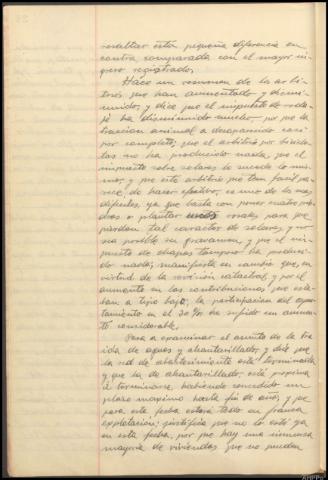 resultar esta pequeña diferencia en
contra comparada con el mayor in-
greso registrado.
Hace un resumen de los arbi-
trios que han aumentado y dismi-
nuido, y dice que el impuesto de roda-
je ha disminuido mucho, por que la
traccion animal a desaparecido casi
por completo; que el arbitrio por bicicle-
tas no ha producido nada, que el
impuesto sobre solares le sucede lo mis-
mo, y que este arbitrio que tan facil pa-
rece, de hacer efectivo, es uno de los mas
dificiles, ya que basta con poner cuatro pie-
dras o plantar unos rosales para que
pierdan tal caracter de solares, y no
sea posible su gravamen, y que el im-
puesto de chapas tampoco ha produci-
do nada; manifiesta en cambio que, en
virtud de la revision catastral, y por el
aumento en las contribuciones, que esta-
ban a tipo bajo, la participacion del ayun-
tamiento en el 20% ha sufrido un aumen-
to considerable.
Pasa a examinar el asunto de la tra-
ida de aguas y alcantarillado, y dice que
la red de abastecimiento esta terminada
y que la de alcantarillado, esta proxima
á terminarse, habiendo concedido un
plazo maximo hasta fin de año, y que
para esta fecha estará todo en franca
explotacion; justifica que no lo esté ya
en esta fecha, por que hay una inmensa
mayoria de viviendas que no pueden
AHPPo